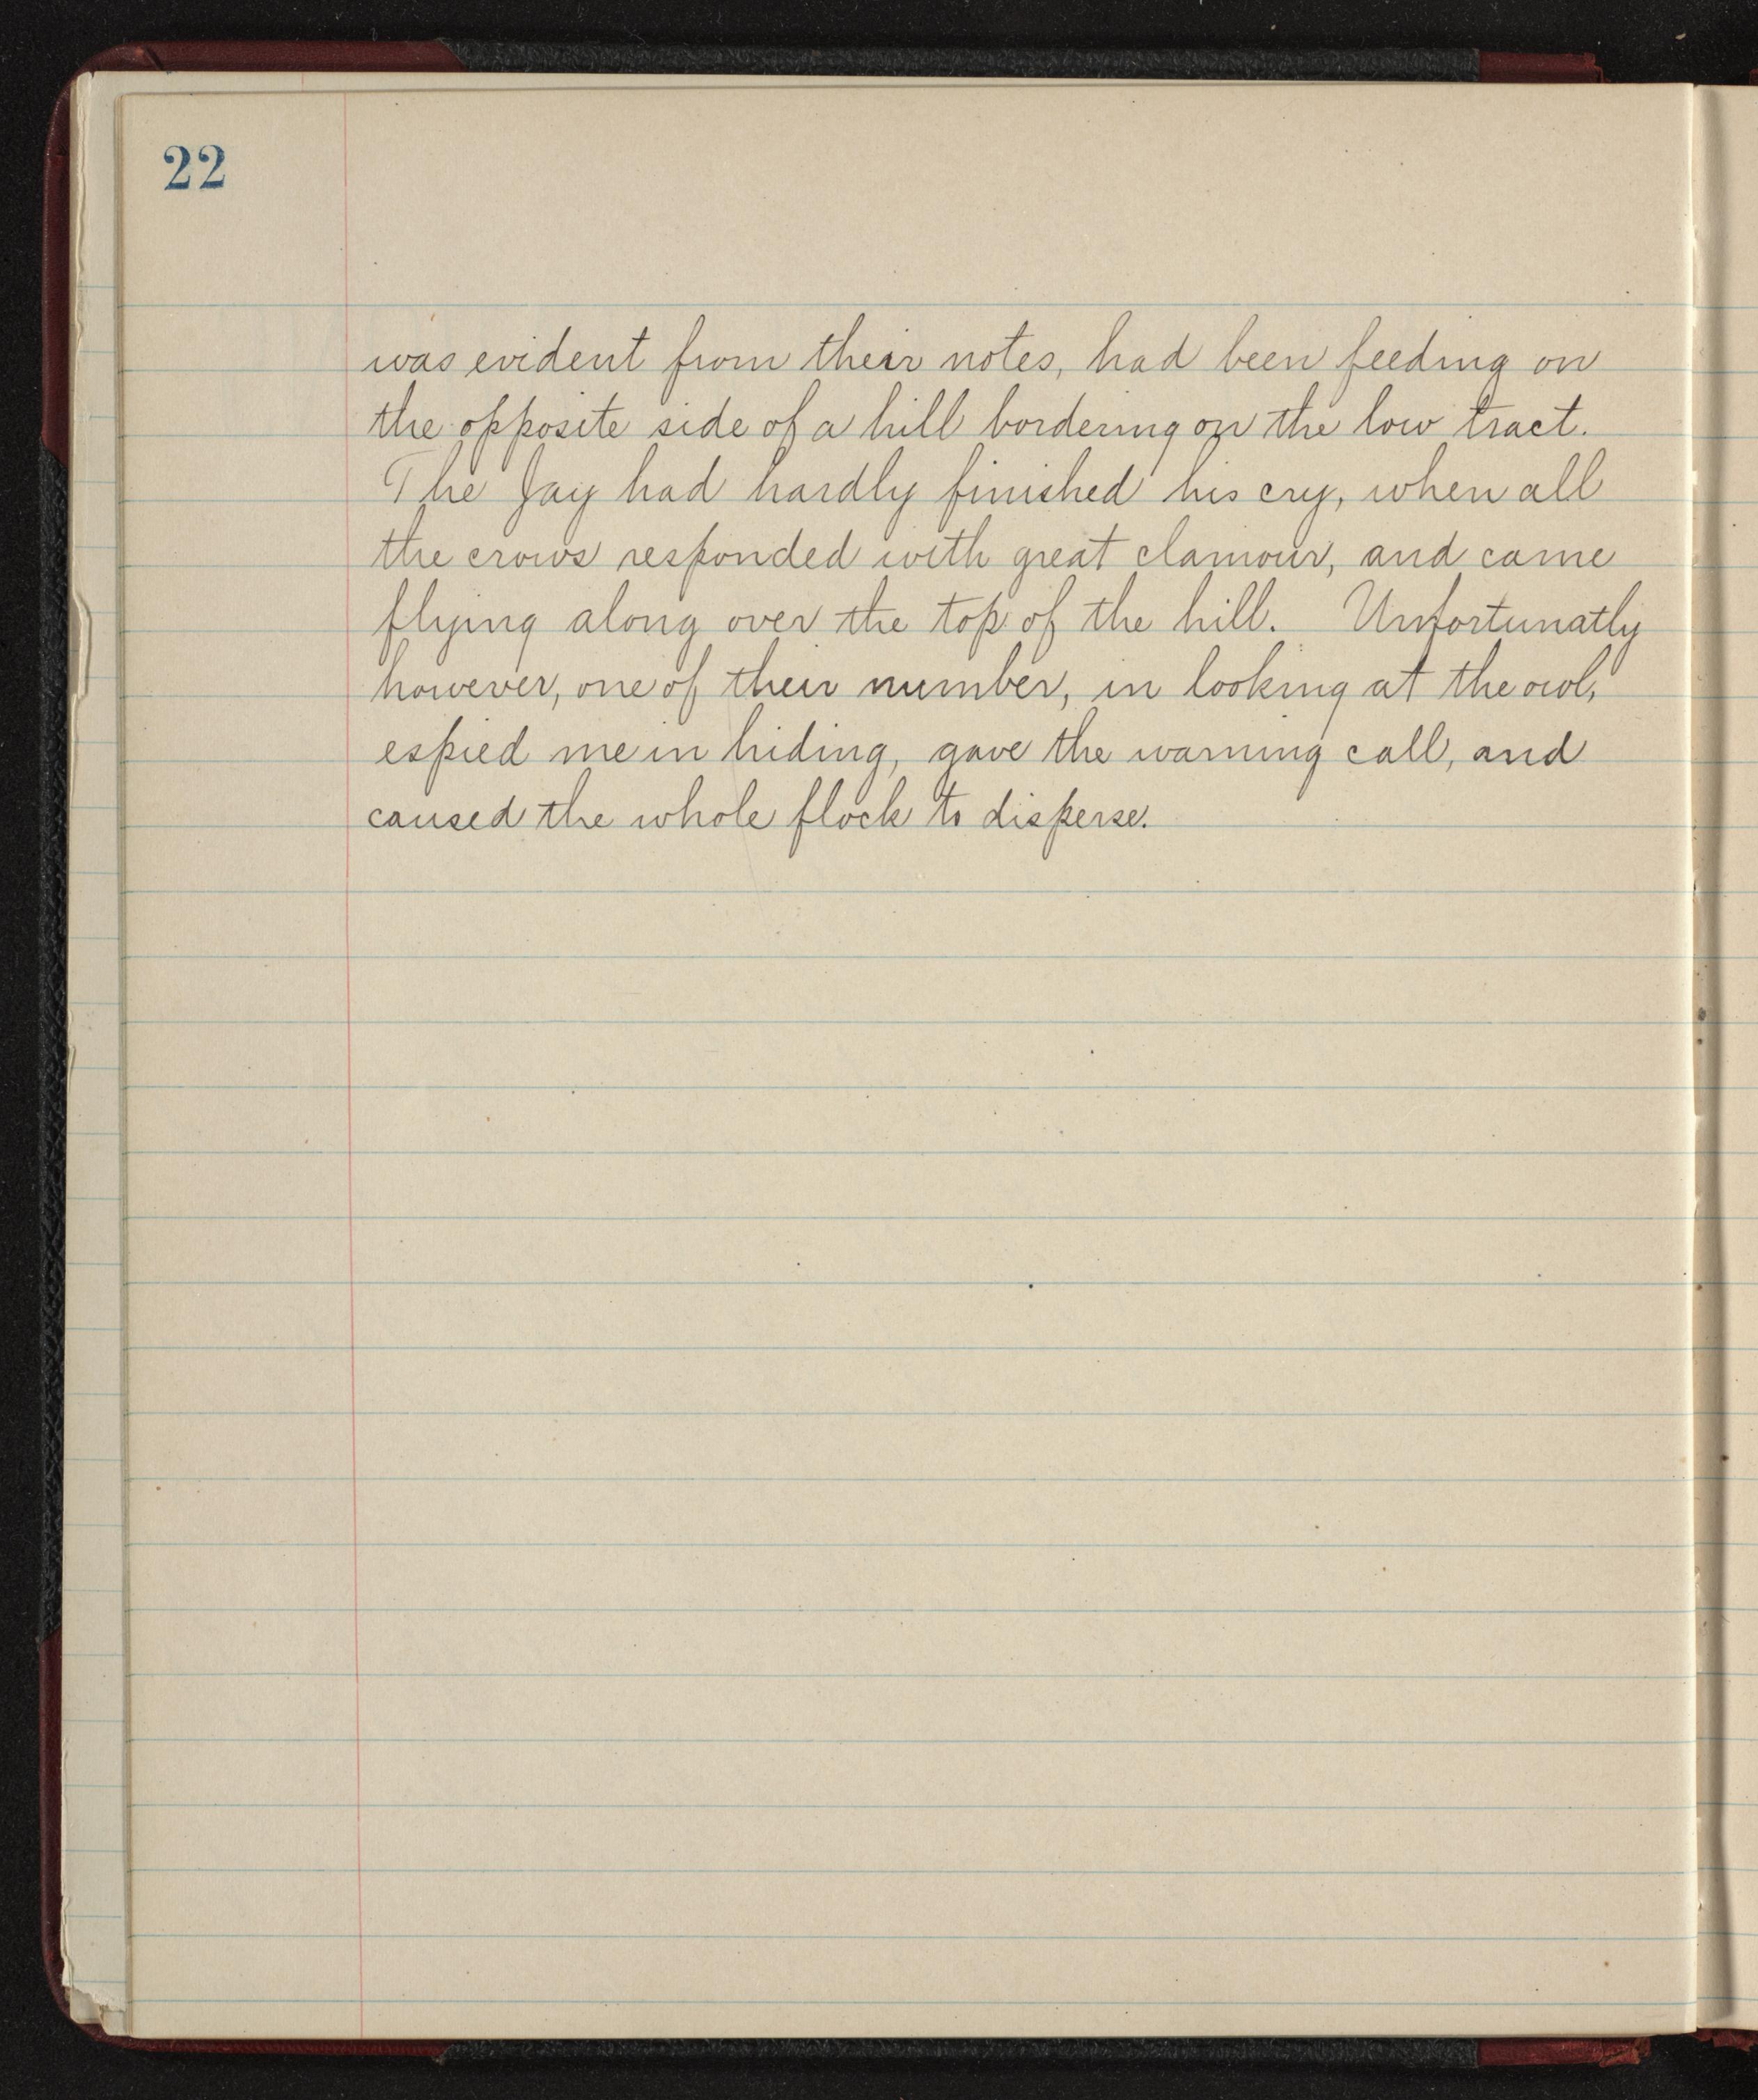 22
was evident from their notes, had been feeding on
the opposite side of a hill bordering on the low tract.
The Jay had hardly finished his cry, when all
the crows responded with great clamour, and came
flying along over the top of the hill. Unfortunatly
however, one of their number, in looking at the owl,
espied me in hiding, gave the warning call, and
caused the whole flock to disperse.